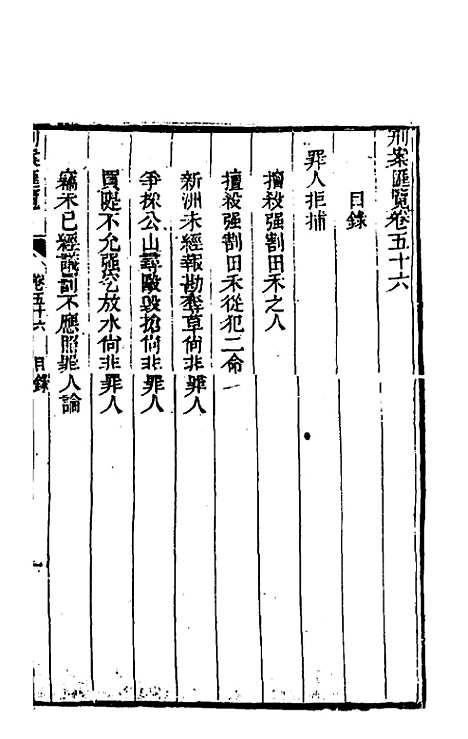 刑案匯覽卷五十六
目錄
罪人拒捕
擅殺强割田禾之人
擅殺强割田禾從犯二命
新洲未經報勘牽草尚非罪人
爭採公山尋毆毀搶尚非罪人
買堤不允强挖放水尚非罪人
竊未已經議罰不應照罪人論
刑案匯覽 卷五十六 目錄 一